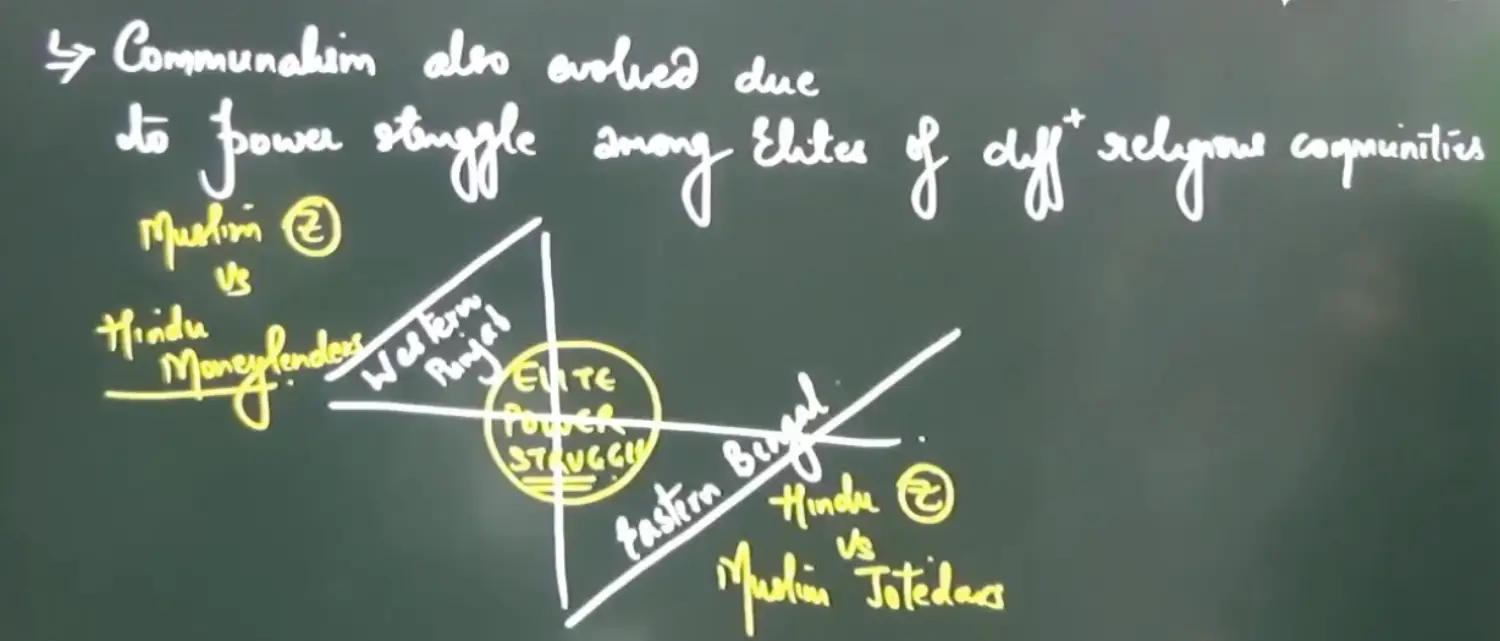 ↳ Communalism also evolved due
to power struggle among Elites of diff⁺ religious communities
Muslim Ⓩ
vs
Hindu
Moneylenders
Western
Punjab
ELITE
POWER
STRUGGLE
Eastern Bengal
Hindu Ⓩ
vs
Muslim Jotedars